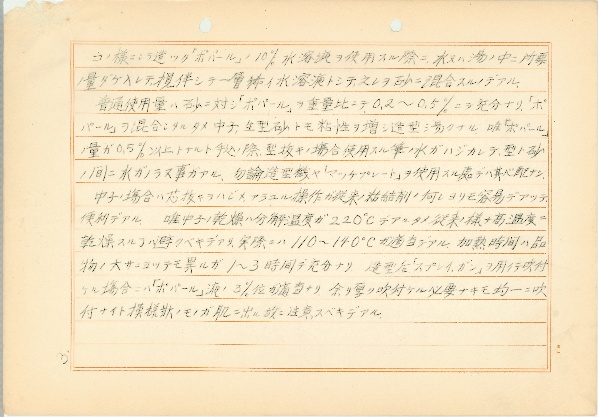 コノ様ニシテ造ツタ「ポバール」ノ10％水溶液ヲ使用スル際ニ、水又ハ湯ノ中ニ所要
量ダケ入レテ攪拌シテ一層稀イ水溶液トシテ之レヲ砂ニ混合スルノデアル。
普通使用量ハ砂ニ対シ「ポバール」ヲ重量比ニテ0.2～0.5％ニテ充分ナリ、「ポ
バール」ヲ混合シタルタメ中子、生型砂トモ粘性ヲ増シ造型シ易カナル 唯「ポバール」
量ガ0.5％以上トナルト手込ノ際、型抜キノ場合使用スル筆ノ水ガハジカレテ、型ト砂
ノ間ニ水ガ入ラヌ事ガアル、勿論造型機ヤ「マッチプレート」ヲ使用スル処デハ
中子ノ場合ハ芯抜キヲハジメアラユル操作ガ従来ノ粘結剤ノ何レヨリモ容易デアツテ、
便利デアル。 唯中子ノ乾燥ハ分解温度ガ220℃デアルタメ従来ノ様ナ高温度ニ
乾燥スルヲ避クベキデアリ、実際ニハ110～140℃ガ適当デアル。加熱時間ハ品
物ノ大サニヨツテモ異ルガ 1～3時間デ充分ナリ 造型后「スプレイ、ガン」ヲ用イテ吹付
ケル場合ニハ「ポバール」液ノ3％位ガ適当ナリ 余リ厚ク吹付ケル必要ナキモ均一ニ吹
付ナイト模様状ノモノガ肌ニ出ル故ニ注意スベキデアル。